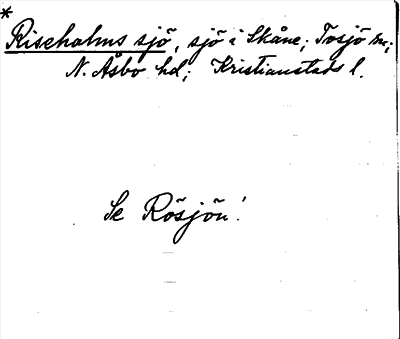 *
Riseholms sjö, sjö i Skåne; Tosjö sn;
N. Åsbo hd; Kristianstads l.
Se Rösjön!